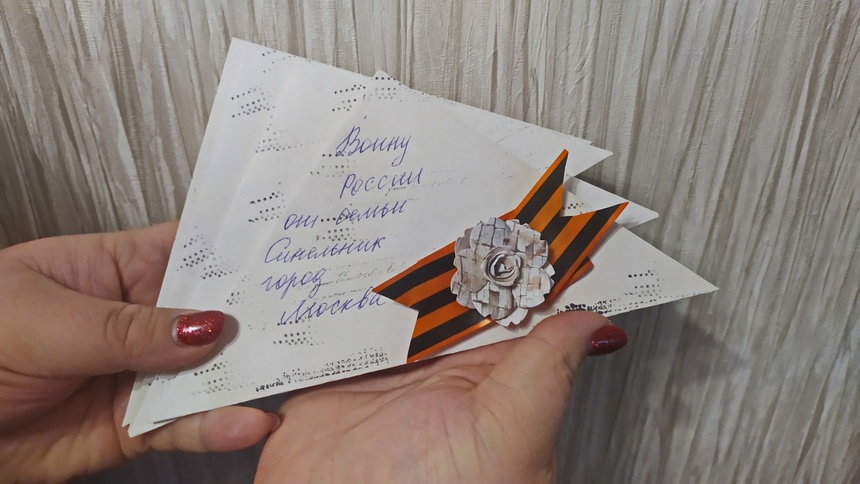 Воину
России
от семьи
Синельник
город
Москва